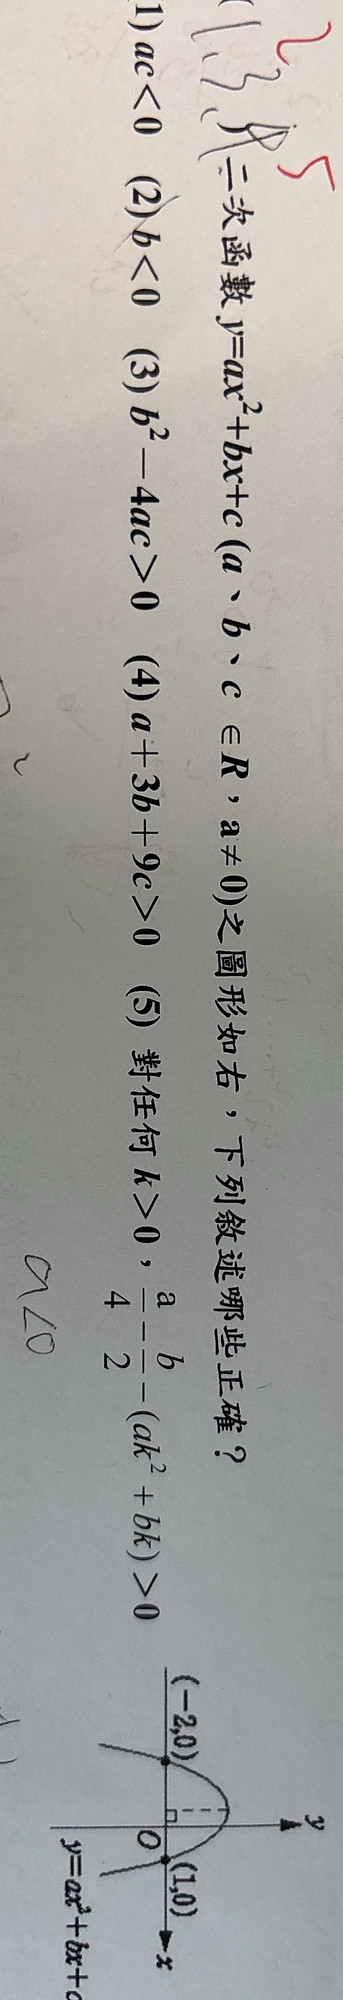 二次函數 y=ax²+bx+c (a、b、c ∈R，a≠0)之圖形如右，下列敘述哪些正確？
1) ac<0 (2) b<0 (3) b²-4ac>0 (4) a+3b+9c>0 (5) 對任何 k>0，a/4-b/2-(ak²+bk)>0
y
(-2,0) O (1,0) x
y=ax²+bx+c
a<0